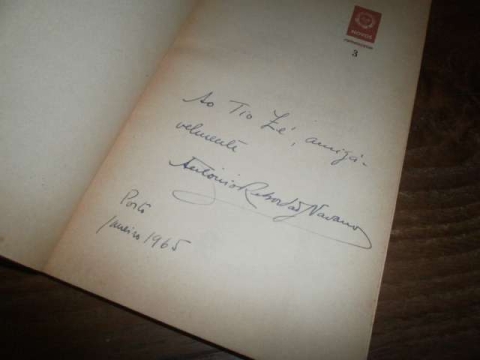 3
Ao Tio Zé, amigá-
velmente
António Rebordão Navarro
Porto
Janeiro 1965